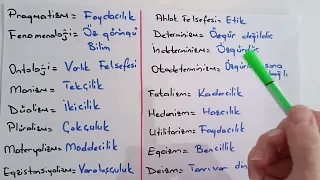 Pragmatizm = Faydacılık
Fenomenoloji = Öz görüngü
Bilim
Ontoloji = Varlık Felsefesi
Monizm = Tekçilik
Düalizm = İkicilik
Plüralizm = Çokçuluk
Materyalizm = Maddecilik
Egzistansiyalizm = Varoluşçuluk
Ahlak Felsefesi = Etik
Determinizm = Özgür değildir
İndeterminizm = Özgürdür
Otodeterminizm =
Fatalizm = Kadercilik
Hedonizm = Hazcılık
Utilitarizm = Faydacılık
Egoizm = Bencillik
Deizm = Tanrı var